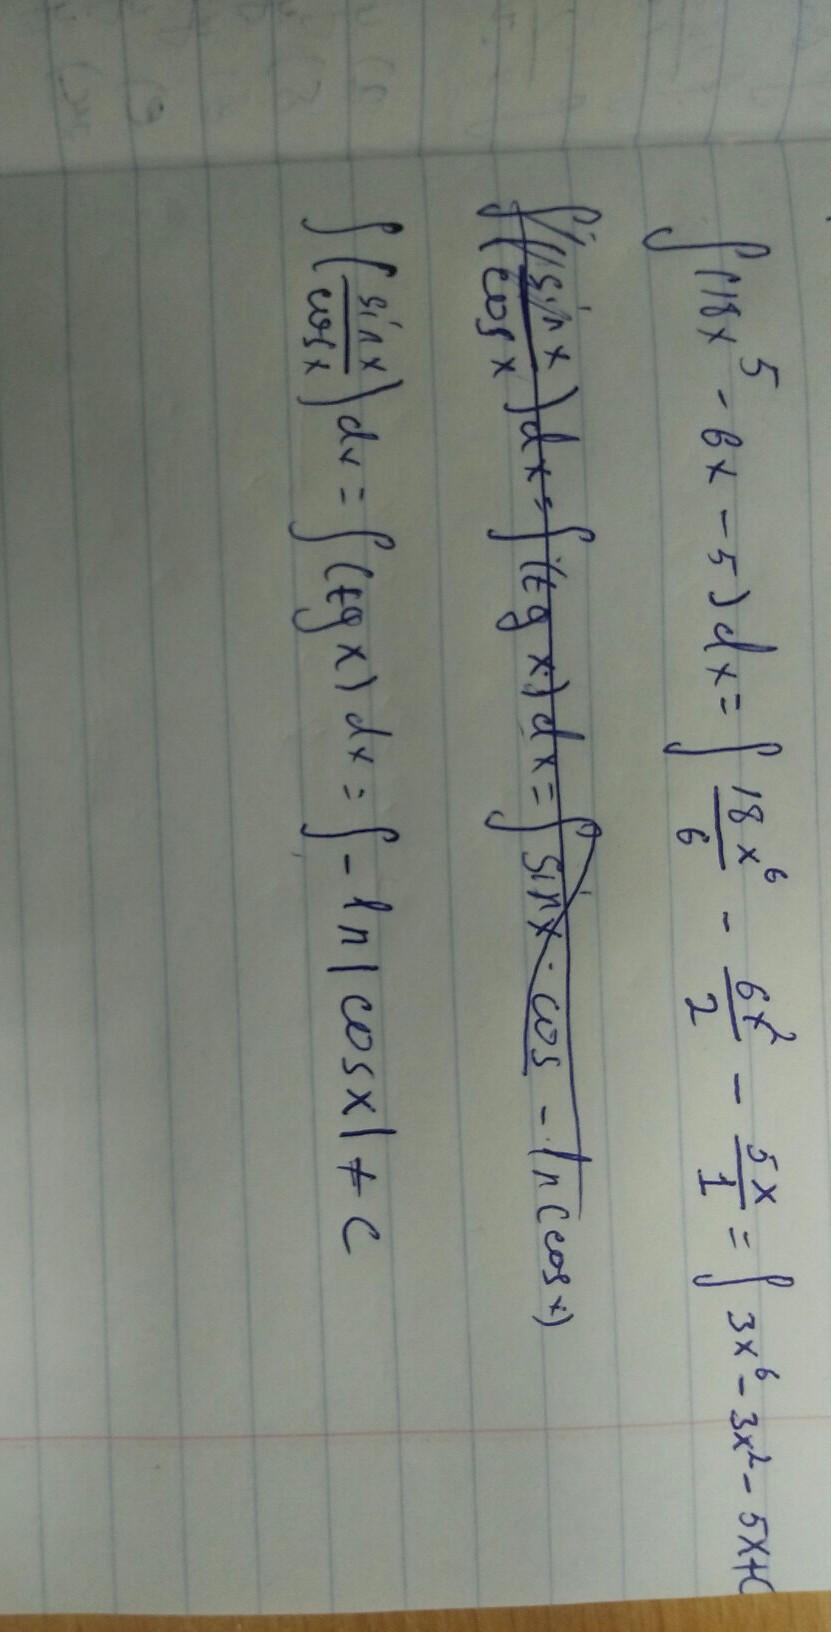 ∫(18x⁵ - 6x - 5)dx = ∫ 18x⁶/6 - 6x²/2 - 5x/1 = ∫ 3x⁶ - 3x² - 5x + C
∫(sin x/cos x)dx = ∫(tg x)dx = ∫ sin x · cos - ln(cos x)
∫(sin x/cos x)dx = ∫(tg x)dx = ∫ - ln|cos x| + C